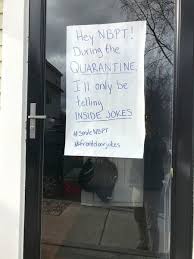 Hey NBPT!
During the
QUARANTINE,
I'll only be
telling
INSIDE JOKES
#SmileNBPT
#frontdoorjokes